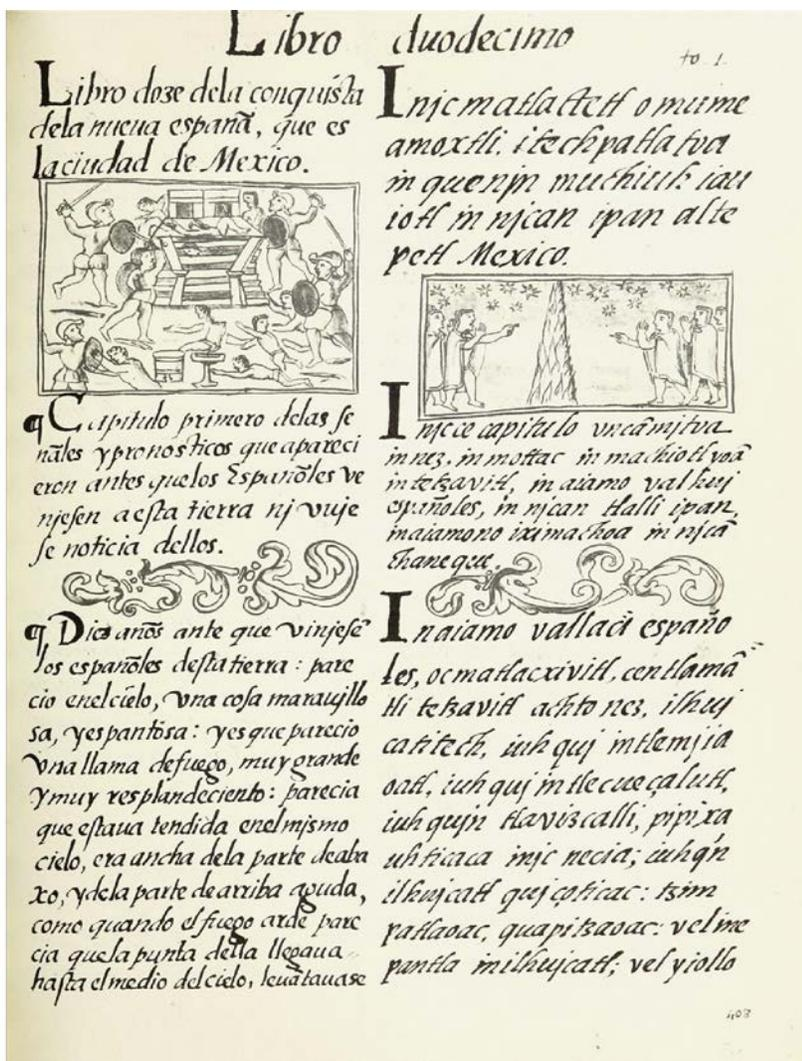 Libro duodecimo
fo. 1.
Libro doze dela conquista
dela nueua españa, que es
la ciudad de Mexico.
¶ Capitulo primero delas se
nāles y pronosticos que apareci
eron antes quelos Españoles ve
njesen a esta tierra nj vuje
se noticia dellos.
¶ Diez años ante que vinjesē
los españoles desta tierra: pare
cio enel cielo, vna cosa marauillo
sa, y espantosa: y es que parecio
vna llama de fuego, muy grande
y muy resplandeciento: parecia
que estaua tendida enel mismo
cielo, era ancha dela parte deaba
xo, y dela parte de arriba aguda,
como quando el fuego arde pare
cia que la punta della llegaua
hasta el medio del cielo, leuātauase
Injc matlactetl omume
amoxtli. itechpatlatoa
in quenjn muchiuh iau
iotl in njcan ipan alte
petl Mexico.
Injc ce capitulo vncā mjtoa
in nez, in mottac in machiotl yoā
in tetzavitl, in aiamo valhuj
españoles, in njcan tlalli ipan,
in aiamono iximachoa in njcā
chaneque.
In aiamo vallaci españo
les, oc matlacxivitl, centlamā
tli tetzavitl achto nez, ilhuj
catitech, iuhquj in tlemjia
oatl, iuhquj in tlecueçalutl,
iuhqujn tlavizcalli, pipixa
uhticaca injc necia; iuhqn̄
ilhujcatl qujçoticac: tzim
patlaoac, quapitzaoac: vel ine
pantla in ilhujcatl; vel yiollo
408